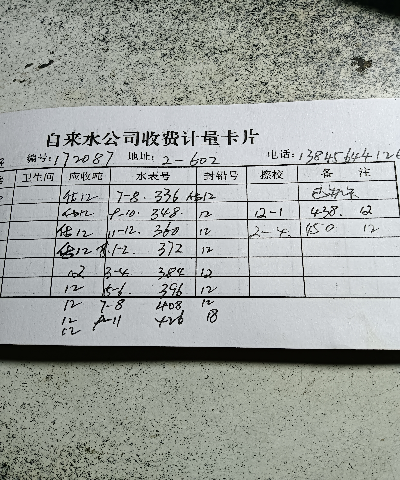 自来水公司收费计量卡片
编号:172087 地址:2-602 电话:13845644126
卫生间 应收吨 水表号 封铅号 擦校 备 注
估12 7-8. 336 估12
估12 9-10. 348. 12 12-1 438. 12
估12 11-12. 360 12 2-4. 450 12
估12 1-2. 372 12
12 3-4 384 12
12 5-6. 396 12
12 7-8 408 12
12 9-11 426 18
12